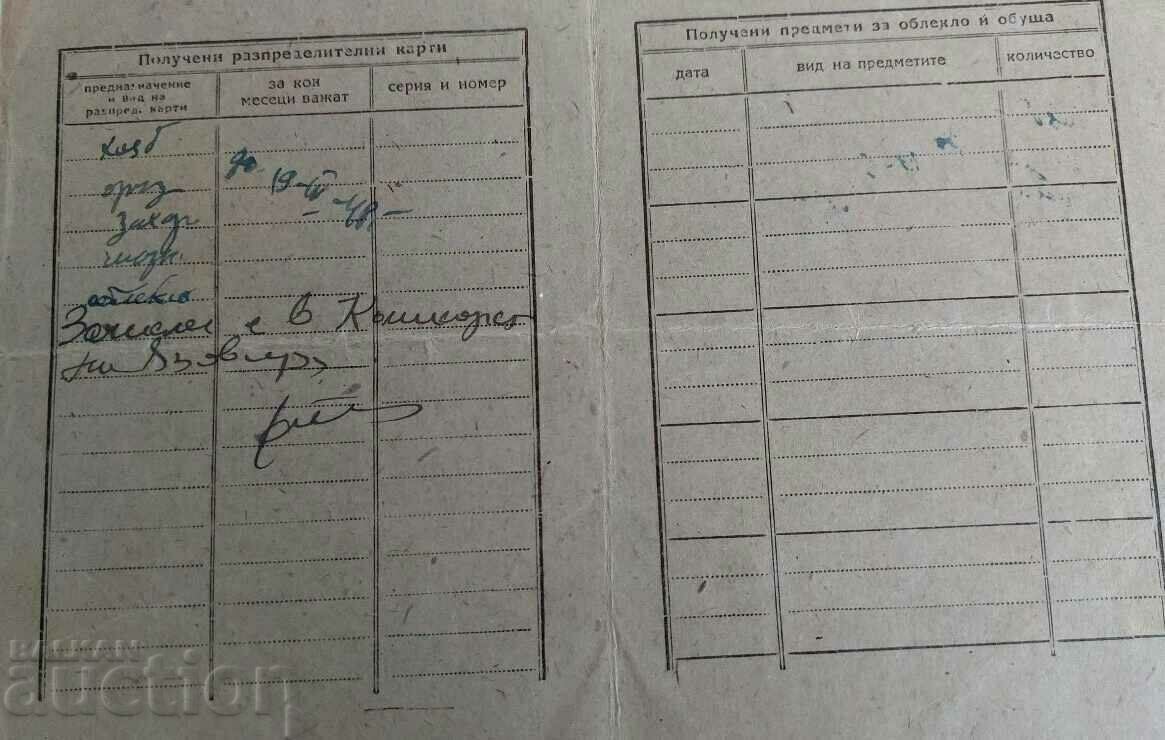 Получени разпределителни карти
предназначение и вид на разпред. карти
за кои месеци важат
серия и номер
хляб
до
ориз
19-IV-48
захар
облекло
е в
на
Получени предмети за облекло и обуща
дата
вид на предметите
количество
BALKAN
auction